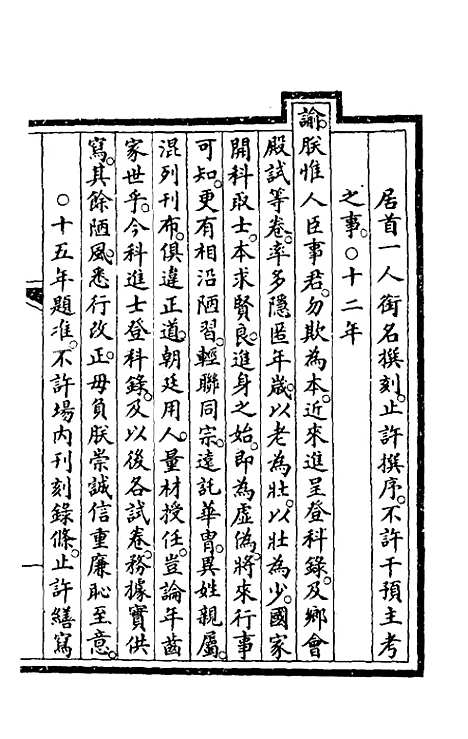 居首一人銜名撰刻。止許撰序。不許干預主考
之事。○十二年
諭。朕惟人臣事君。勿欺為本。近來進呈登科錄。及鄉會
殿試等卷。率多隱匿年歲。以老為壯。以壯為少。國家
開科取士。本求賢良。進身之始。即為虛偽。將來行事
可知。更有相沿陋習。輕聯同宗。遠託華胄。異姓親屬。
混列刊布。俱違正道。朝廷用人。量材授任。豈論年齒
家世乎。今科進士登科錄。及以後各試卷。務據實供
寫。其餘陋風。悉行改正。毋負朕崇誠信重廉恥至意。
○十五年題准。不許場內刊刻錄條。止許繕寫